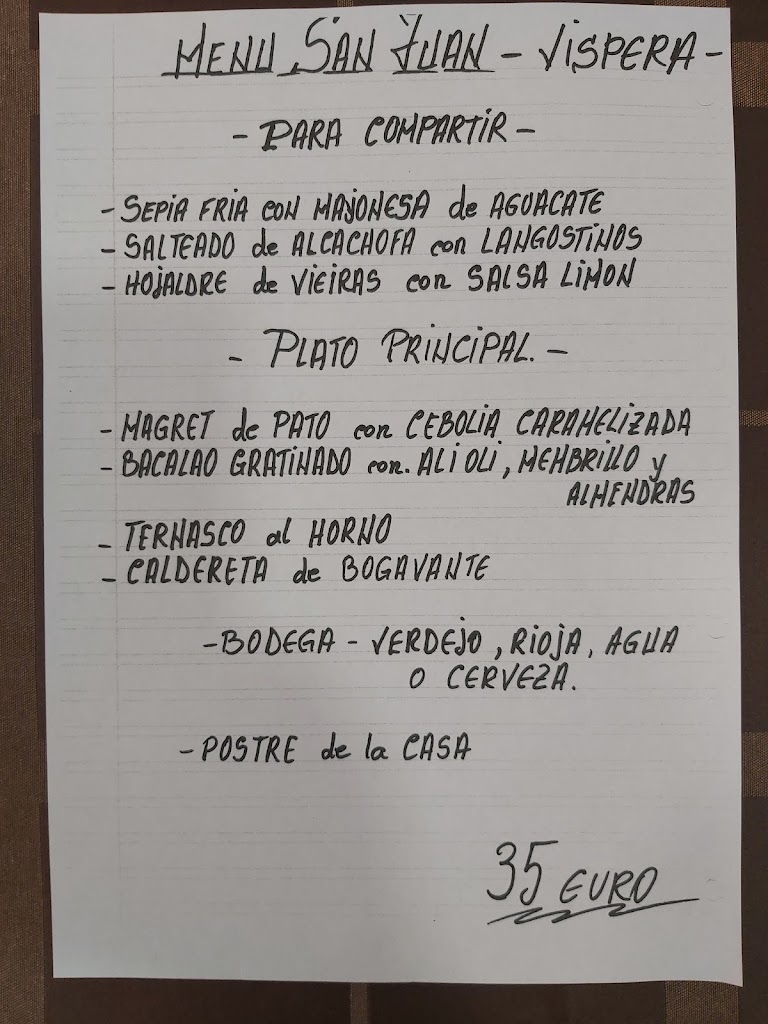 MENU SAN JUAN - VISPERA -
- PARA COMPARTIR -
- SEPIA FRIA con MAJONESA de AGUACATE
- SALTEADO de ALCACHOFA con LANGOSTINOS
- HOJALDRE de VIEIRAS con SALSA LIMON
- PLATO PRINCIPAL. -
- MAGRET de PATO con CEBOLIA CARAMELIZADA
- BACALAO GRATINADO con. ALI OLI, MEMBRILLO y
ALMENDRAS
- TERNASCO al HORNO
- CALDERETA de BOGAVANTE
- BODEGA - VERDEJO, RIOJA, AGUA
O CERVEZA.
- POSTRE de la CASA
35 EURO